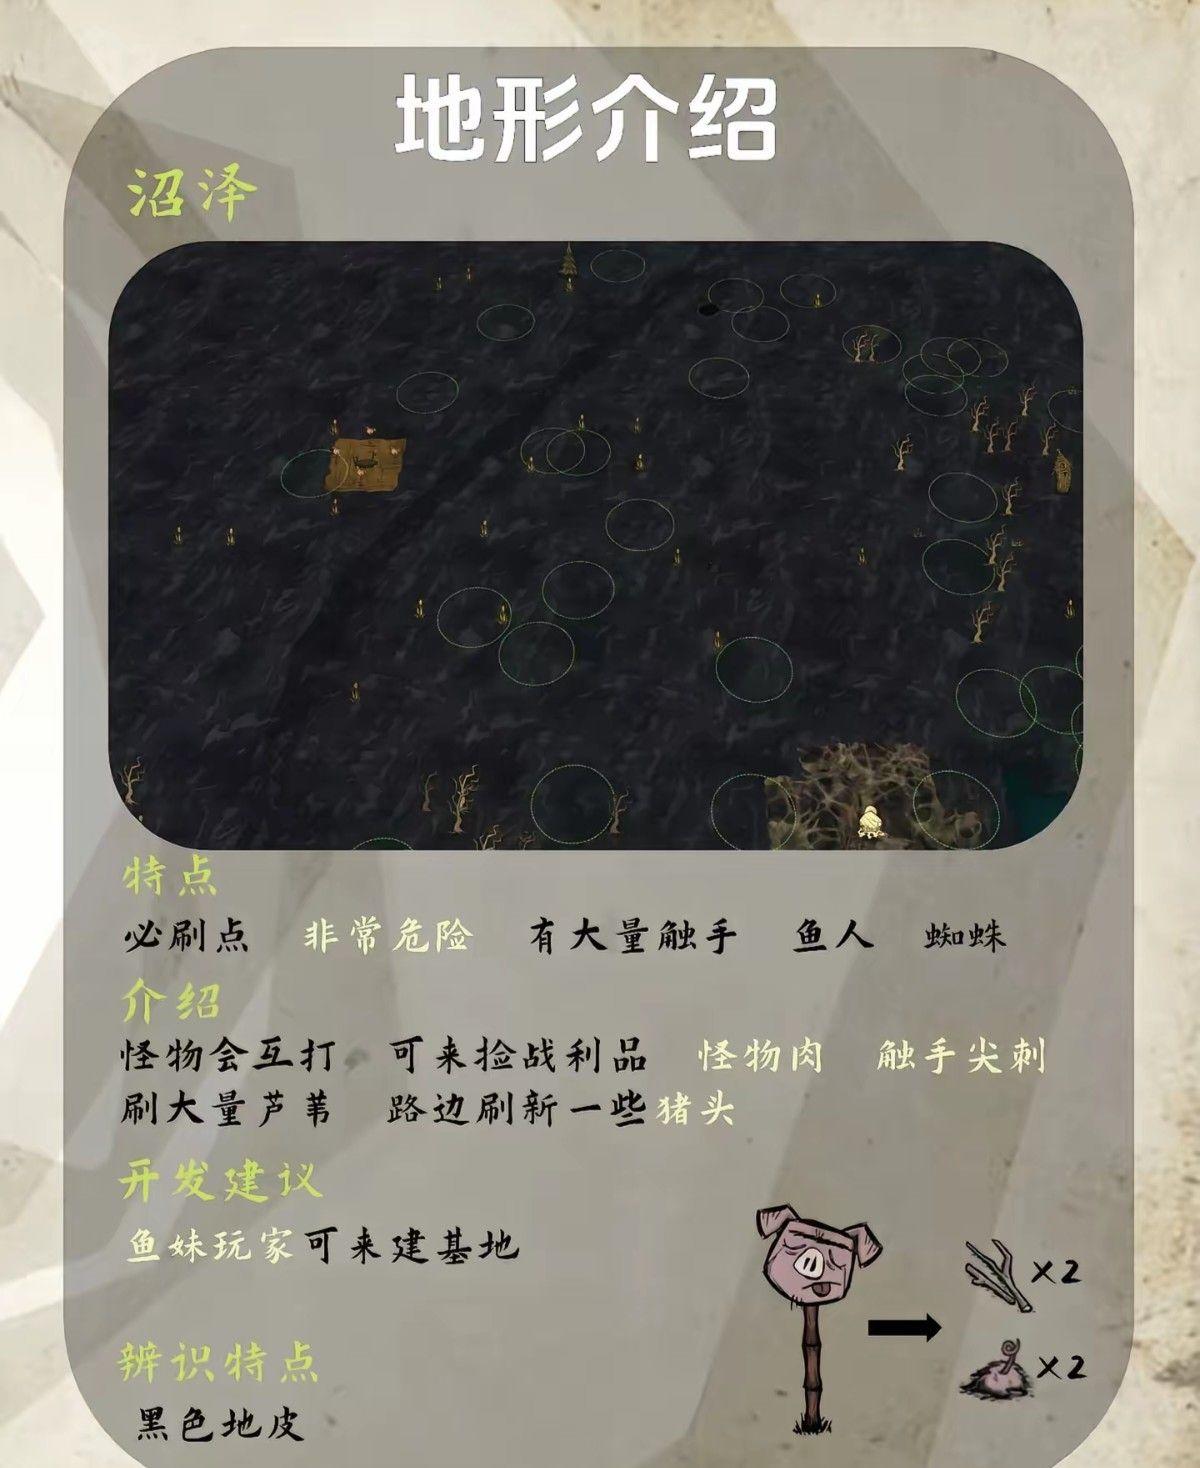 地形介绍
沼泽
特点
必刷点 非常危险 有大量触手 鱼人 蜘蛛
介绍
怪物会互打 可来捡战利品 怪物肉 触手尖刺
刷大量芦苇 路边刷新一些猪头
开发建议
鱼妹玩家可来建基地
×2
×2
辨识特点
黑色地皮